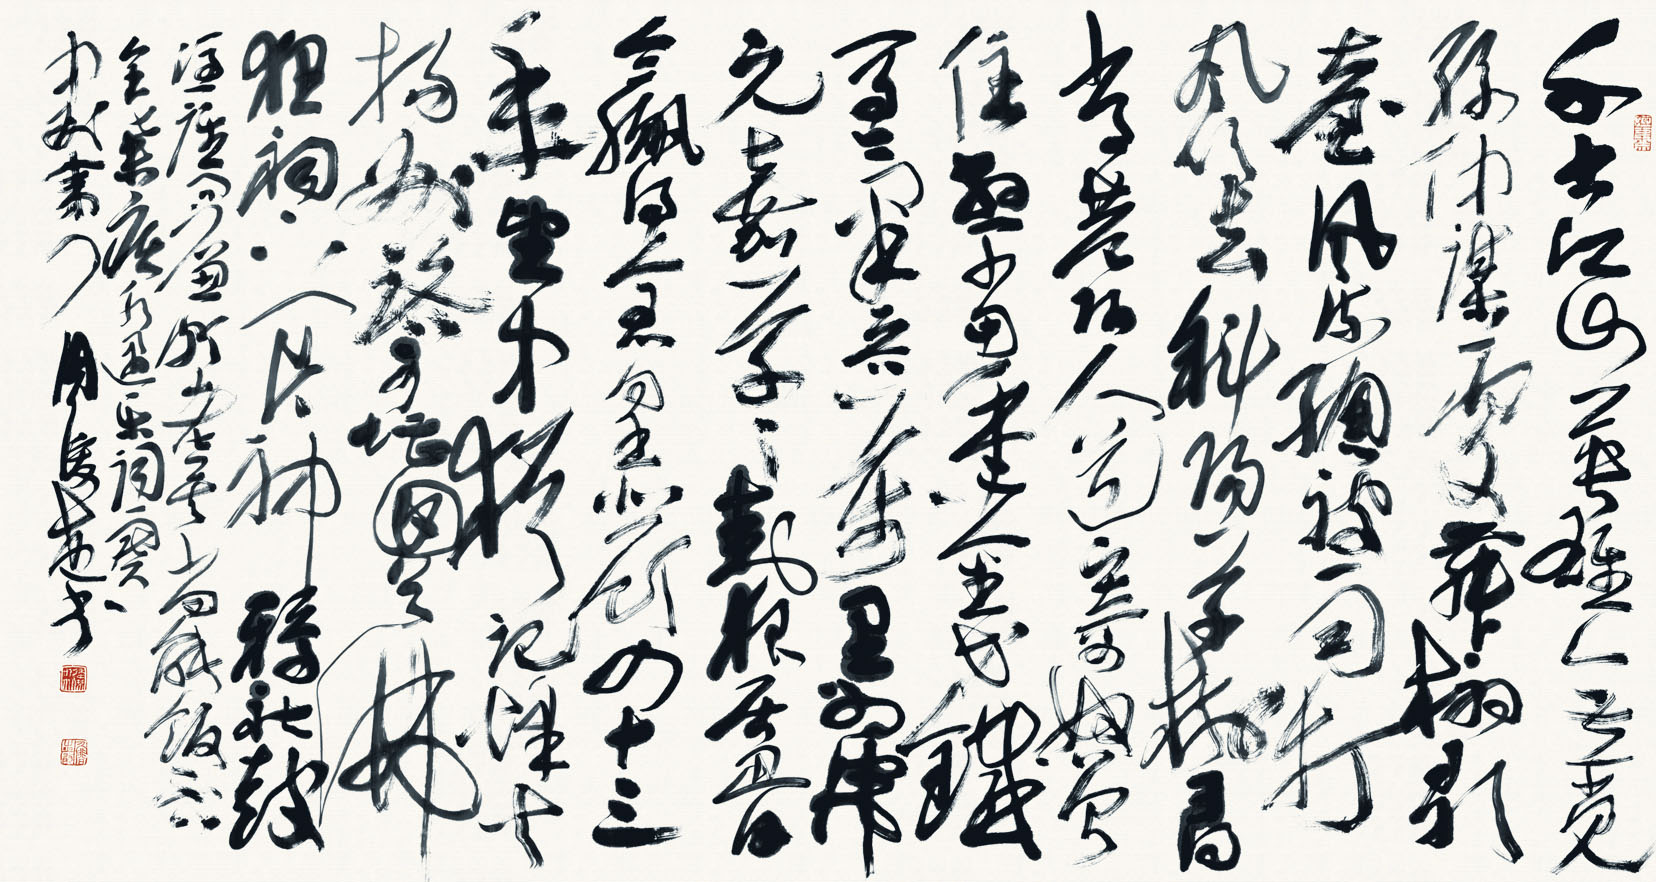 千古江山英雄无觅
孙仲谋处舞榭歌
臺风流总被雨打
风吹去斜阳草树寻
常巷陌人道寄奴曾
住想当年金戈铁
马气吞万里如虎
元嘉草草封狼居胥
赢得仓皇北顾四十三
年望中犹记烽火
扬州路可堪回首佛
狸祠下一片神鸦社鼓
凭谁问廉颇老矣尚能饭否
弃疾永遇乐词